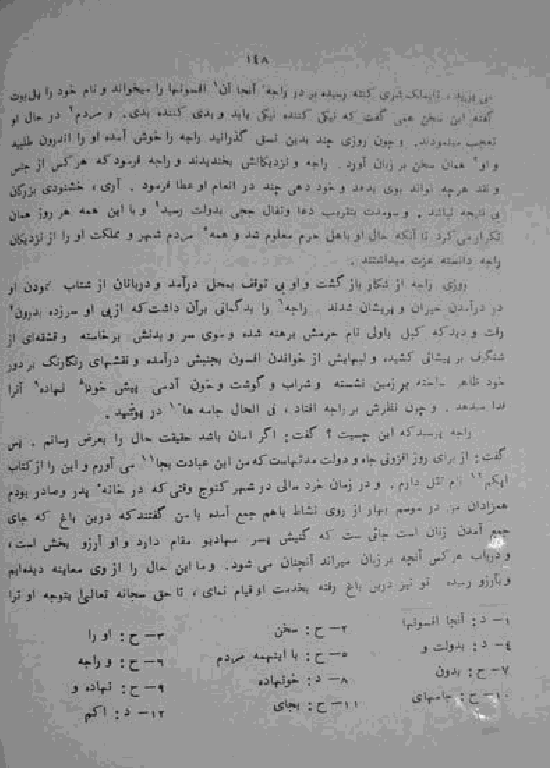 ۱٤۸
رسیده بر در راجه آنجا آن۱ افسونها را میخواند و نام خود را پل‌بوت
گفته این سخن همی گفت که نیکی کننده نیکی یابد و بدی کننده بدی. و مردم۲ در حال او
تعجب مینمودند. و چون روزی چند بدین نسق گذرانید راجه را خوش آمده او را اندرون طلبید
و او۳ همان سخن بر زبان آورد. راجه و نزدیکانش بخندیدند و راجه فرمود که هر کس از جنس
و نقد هرچه تواند بوی بدهد و خود دهی چند در انعام او عطا فرمود. آری، خشنودی بزرگان
بی نتیجه نباشد. و بتقریب دعا و تفال بدولت رسید٤ و با این همه هر روز همان
تکرار می کرد تا آنکه حال او باهل حرم معلوم شد و همه٥ مردم شهر و مملکت او را از نزدیکان
راجه دانسته عزت میداشتند.
روزی راجه از شکار باز گشت و او بی توقف بمحل درآمد و دربانان از شتاب نمودن او
در درآمدن حیران و پریشان شدند. راجه٦ را بدگمانی برآن داشت که از پی او سرزده بدرون۷
رفت و دید که نام حرمش برهنه شده و موی سر و بدنش برخاسته و قشقه‌ای از
شنگرف بر پیشانی کشیده و لبهایش از خواندن افسون بجنبش درآمده و نقشهای رنگارنگ بر دور
خود ظاهر ساخته بر زمین نشسته و شراب و گوشت و خون آدمی پیش خود۸ نهاده۹ آنرا
فدا میدهد. و چون نظرش بر راجه افتاد، فی الحال جامه ها۱۰ در پوشید.
راجه پرسید که این چیست؟ گفت: اگر امان باشد حقیقت حال را بعرض رسانم. پس
گفت: از برای روز افزونی جاه و دولت مدتهاست که من این عبادت بجا۱۱ می آورم و این را از کتاب
۱۲ نام نقل دارم. و در زمان خرد سالی در شهر کنوج وقتی که در خانه پدر و مادر بودم
همزادان من در موسم بهار از روی نشاط باهم جمع آمده با من گفتند که درین باغ که جای
جمع آمدن زنان است جائی ست که گنیش پسر مهادیو مقام دارد و او آرزو بخش است،
و درباب هر کس آنچه بر زبان میراند آنچنان می شود. و ما این حال را از وی معاینه دیده‌ایم
و بآرزو رسیده تو نیز درین باغ رفته بخدمت او قیام نمای، تا حق سبحانه تعالیٰ بتوجه او ترا
۱- د: آنجا افسونها ۲- ح: سخن ۳- ح: او را
٤- د: بدولت و ٥- ح: با اینهمه مردم ٦- ح: و راجه
۷- ح: بدون ۸- د: خونهاده ۹- ح: نهاده و
۱۰- ح: جامهای ۱۱- ح: بجای ۱۲- د: اکم